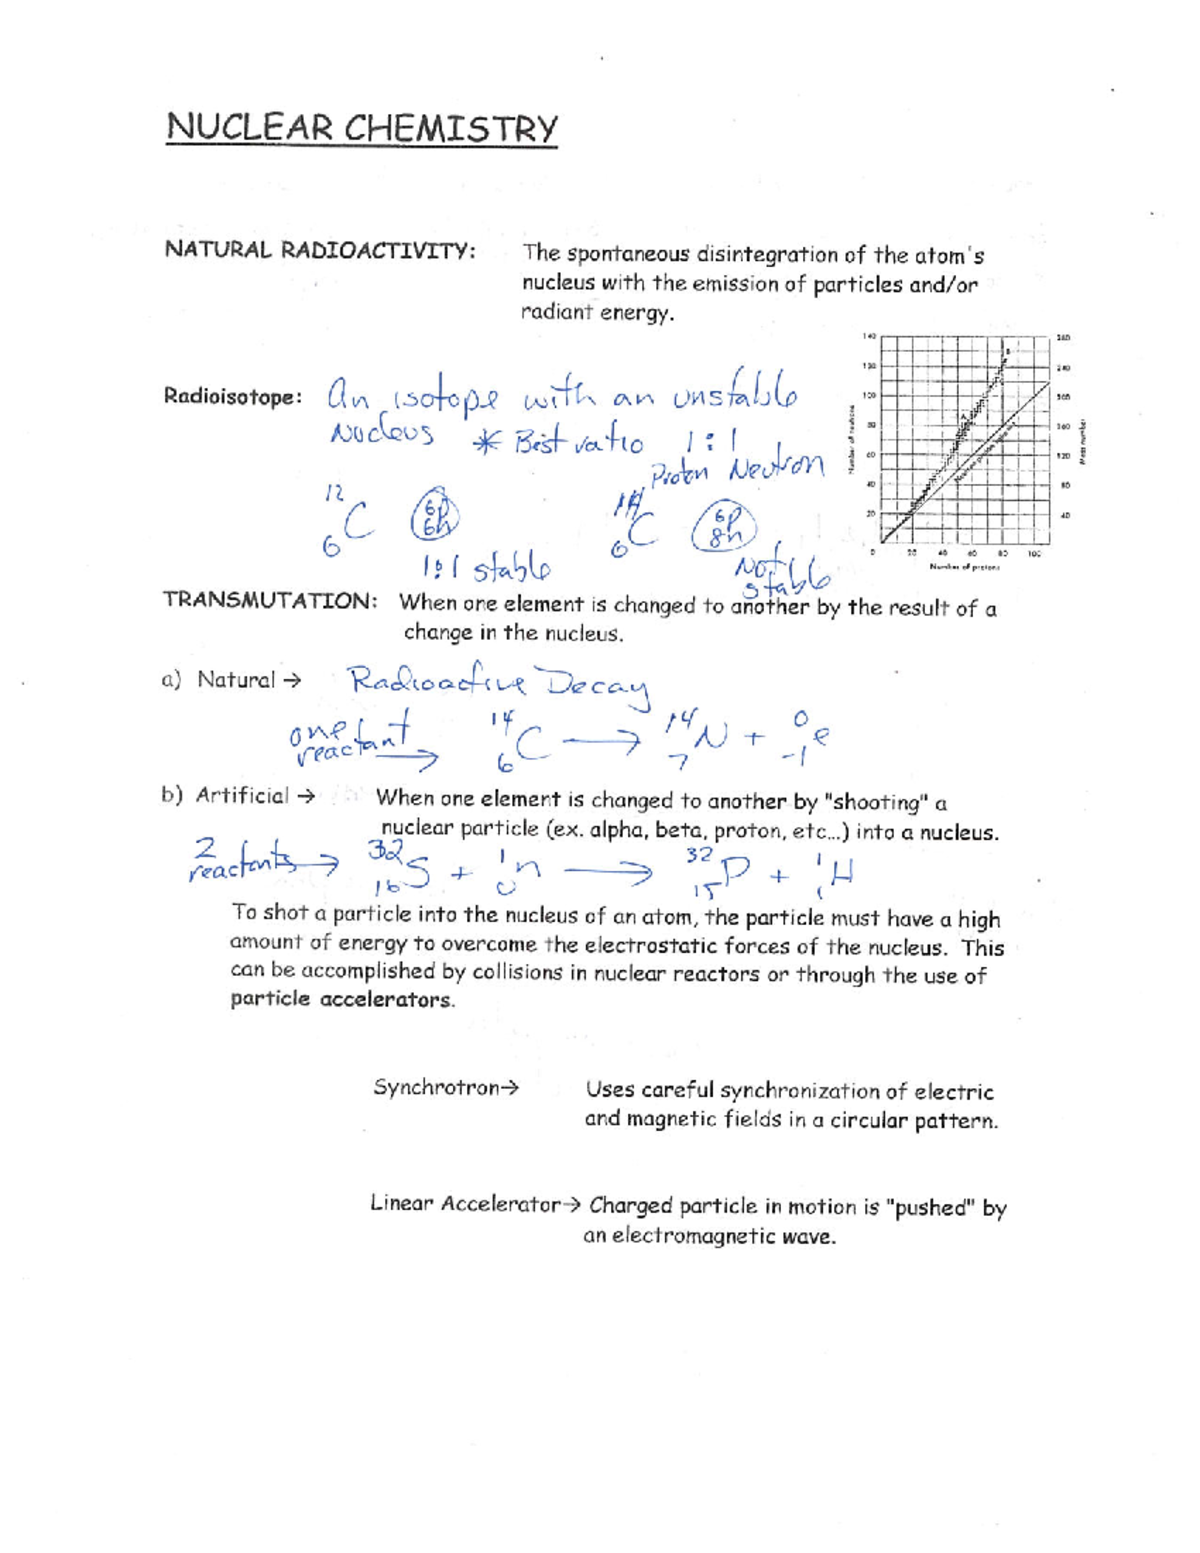 NUCLEAR CHEMISTRY
NATURAL RADIOACTIVITY: The spontaneous disintegration of the atom's
nucleus with the emission of particles and/or
radiant energy.
Radioisotope: An isotope with an unstable
Nucleus * Best ratio 1:1
Proton Neutron
12 6 C 6p 6n 14 6 C 6p 8n
1:1 stable Not stable
140 120 100 80 60 40 20 0
20 40 60 80 100
Number of neutrons
Number of protons
Mass number
240 160 120 80 40
TRANSMUTATION: When one element is changed to another by the result of a
change in the nucleus.
a) Natural → Radioactive Decay
one reactant → 14 6 C → 14 7 N + 0 -1 e
b) Artificial → When one element is changed to another by "shooting" a
nuclear particle (ex. alpha, beta, proton, etc...) into a nucleus.
2 reactants → 32 16 S + 1 0 n → 32 15 P + 1 1 H
To shot a particle into the nucleus of an atom, the particle must have a high
amount of energy to overcome the electrostatic forces of the nucleus. This
can be accomplished by collisions in nuclear reactors or through the use of
particle accelerators.
Synchrotron→ Uses careful synchronization of electric
and magnetic fields in a circular pattern.
Linear Accelerator→ Charged particle in motion is "pushed" by
an electromagnetic wave.